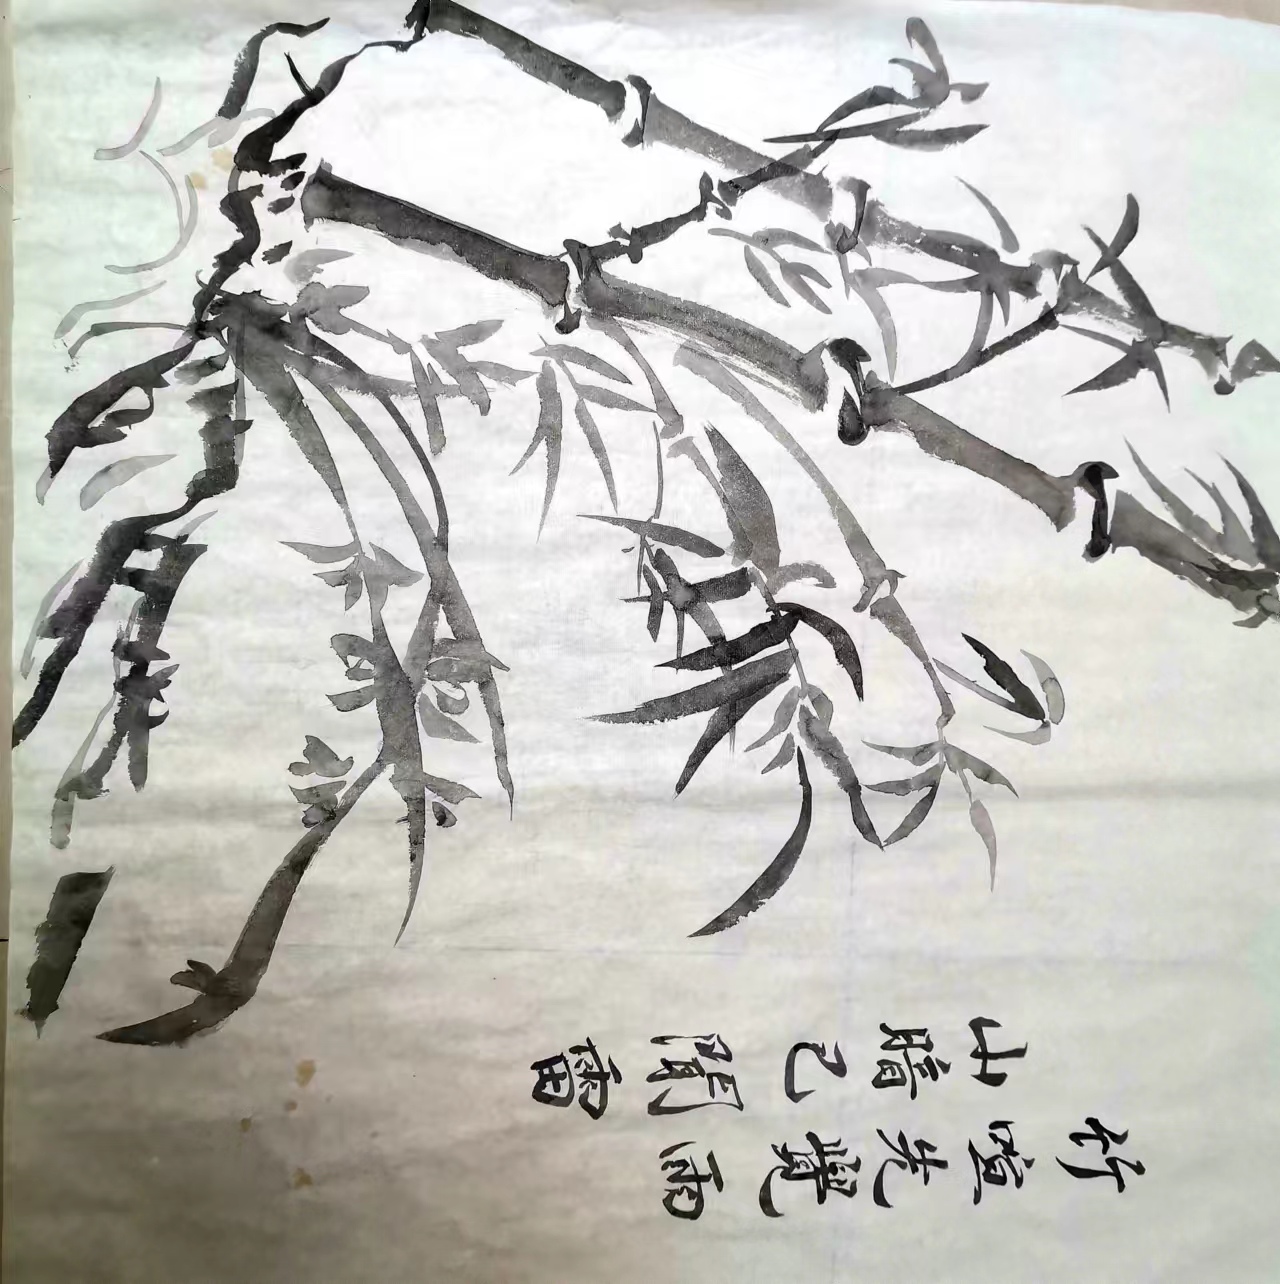 竹喧先覺雨
山暗已聞雷